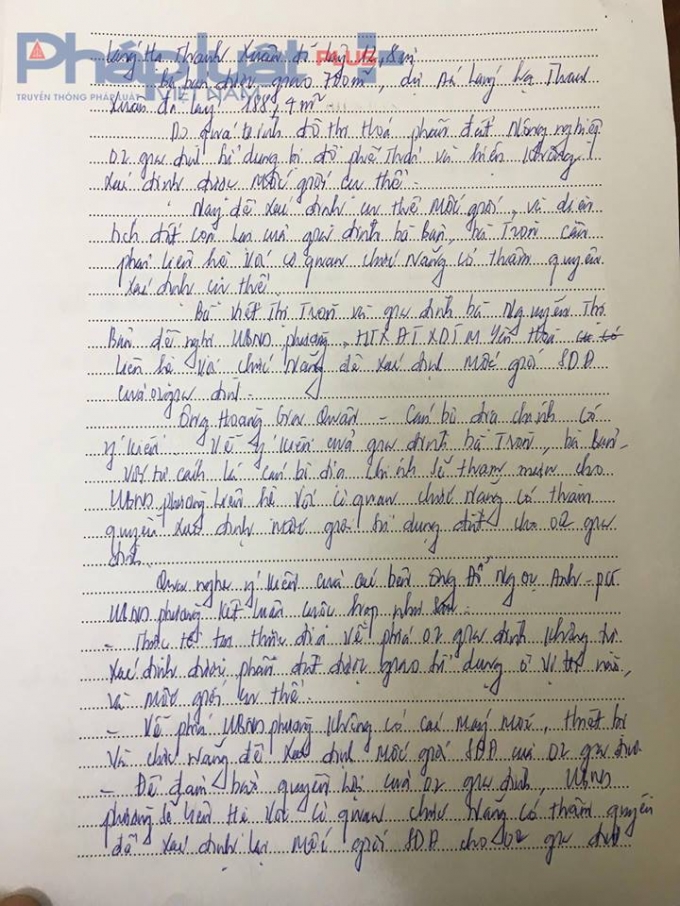 Pháp luật Plus
TRUYỀN THÔNG PHÁP LUẬT VIỆT NAM
Láng Hạ Thanh Xuân đã lấy 12,8m²
Bà bản được giao 700m², dự án Láng Hạ Thanh
Xuân đã lấy 188,4m²
Do quá trình đô thị hoá phần đất nông nghiệp
02 gia đình sử dụng bị đổ phế thải và hiện không
xác định được mốc giới cụ thể.
Nay để xác định cụ thể mốc giới, và diện
tích đất còn lại của gia đình bà Bản, bà Tròn cần
phải liên hệ với cơ quan chức năng có thẩm quyền
xác định cụ thể.
Bà Thị Tròn và gia đình bà Nguyễn Thị
Bản đề nghị UBND phường, HTX Yên Hoà
liên hệ với chức năng để xác định mốc giới SDĐ
của 02 gia đình.
Ông Hoàng Gia Quân - Cán bộ địa chính có
ý kiến. Về ý kiến của gia đình bà Tròn, bà Bản.
Với tư cách là cán bộ địa chính sẽ tham mưu cho
UBND phường liên hệ với cơ quan chức năng có thẩm
quyền xác định mốc giới sử dụng đất cho 02 gia
đình.
Qua nghe ý kiến của các bên ông Đỗ Ngọc Anh - PCT
UBND phường kết luận cuộc họp như sau.
- Thực tế tại thực địa về phía 02 gia đình không tự
xác định được phần đất được giao sử dụng ở vị trí nào,
và mốc giới cụ thể.
- Về phía UBND phường không có máy móc, thiết bị
và chức năng để xác định mốc giới SDĐ của 02 gia đình
- Để đảm bảo quyền lợi của 02 gia đình, UBND
phường sẽ liên hệ với cơ quan chức năng có thẩm quyền
để xác định lại mốc giới SDĐ cho 02 gia đình